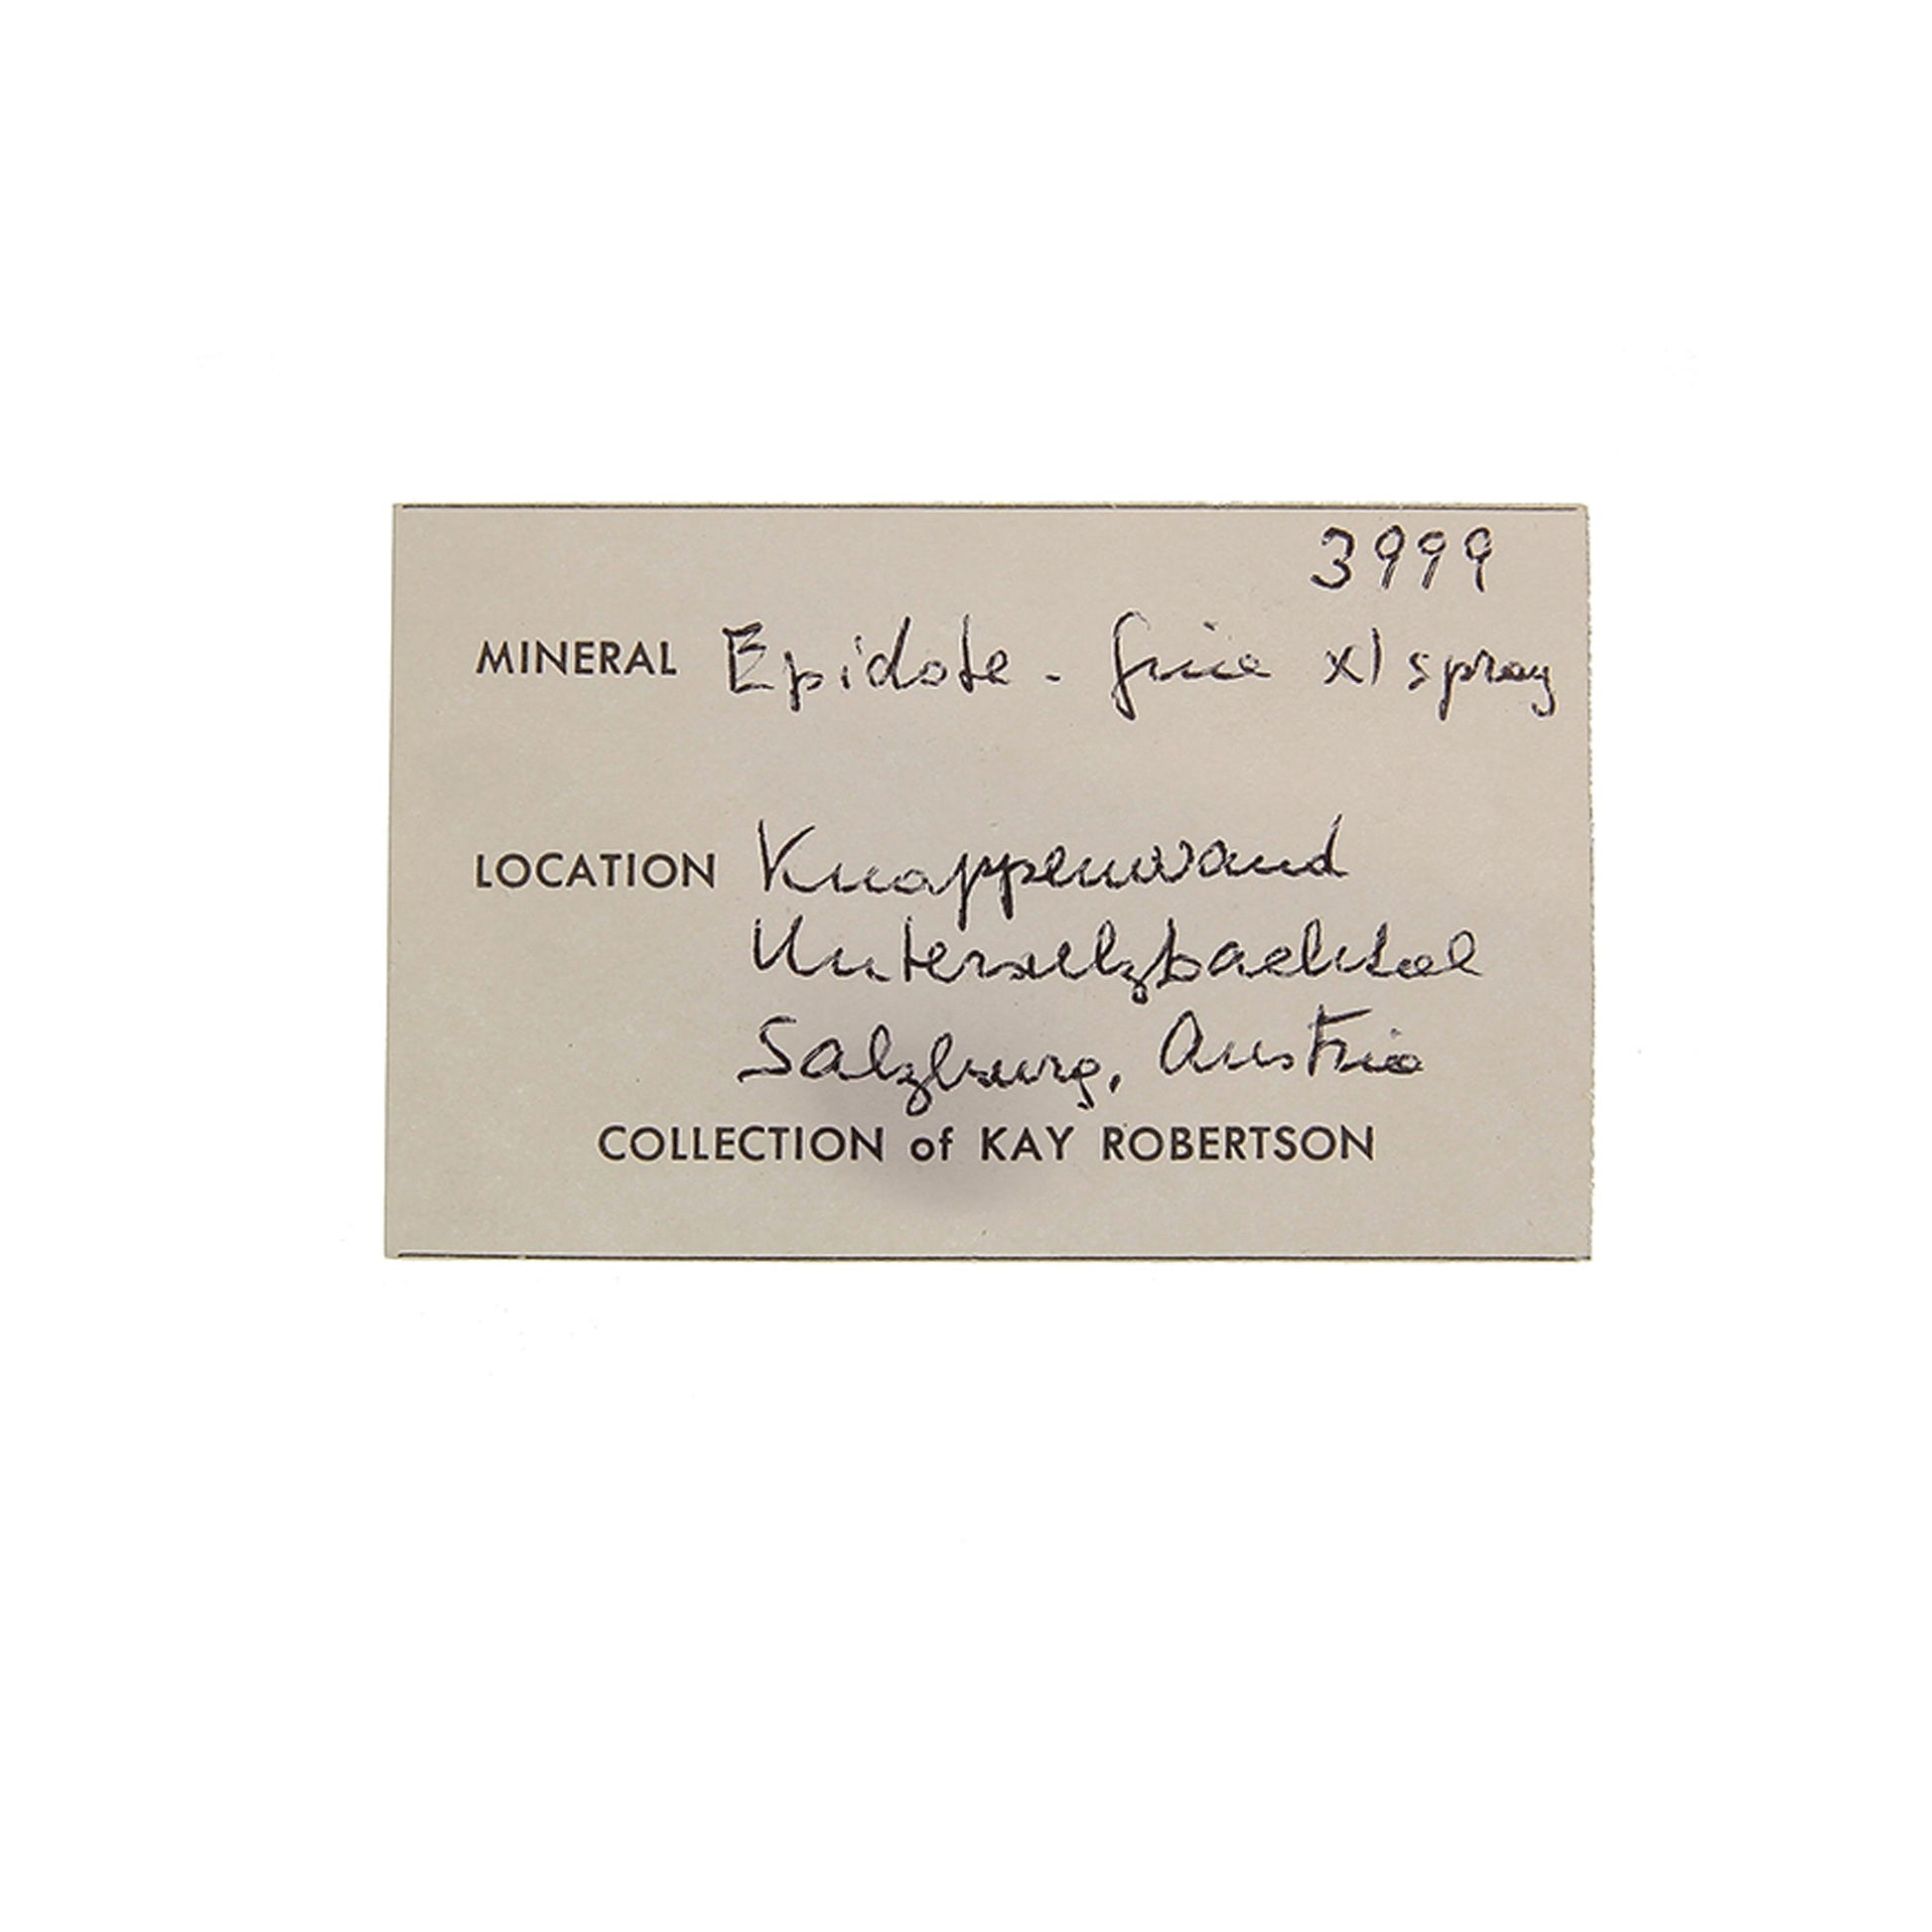 3999
MINERAL Epidote - fine xl spray
LOCATION Knappenwand
Untersulzbachtal
Salzburg, Austria
COLLECTION of KAY ROBERTSON